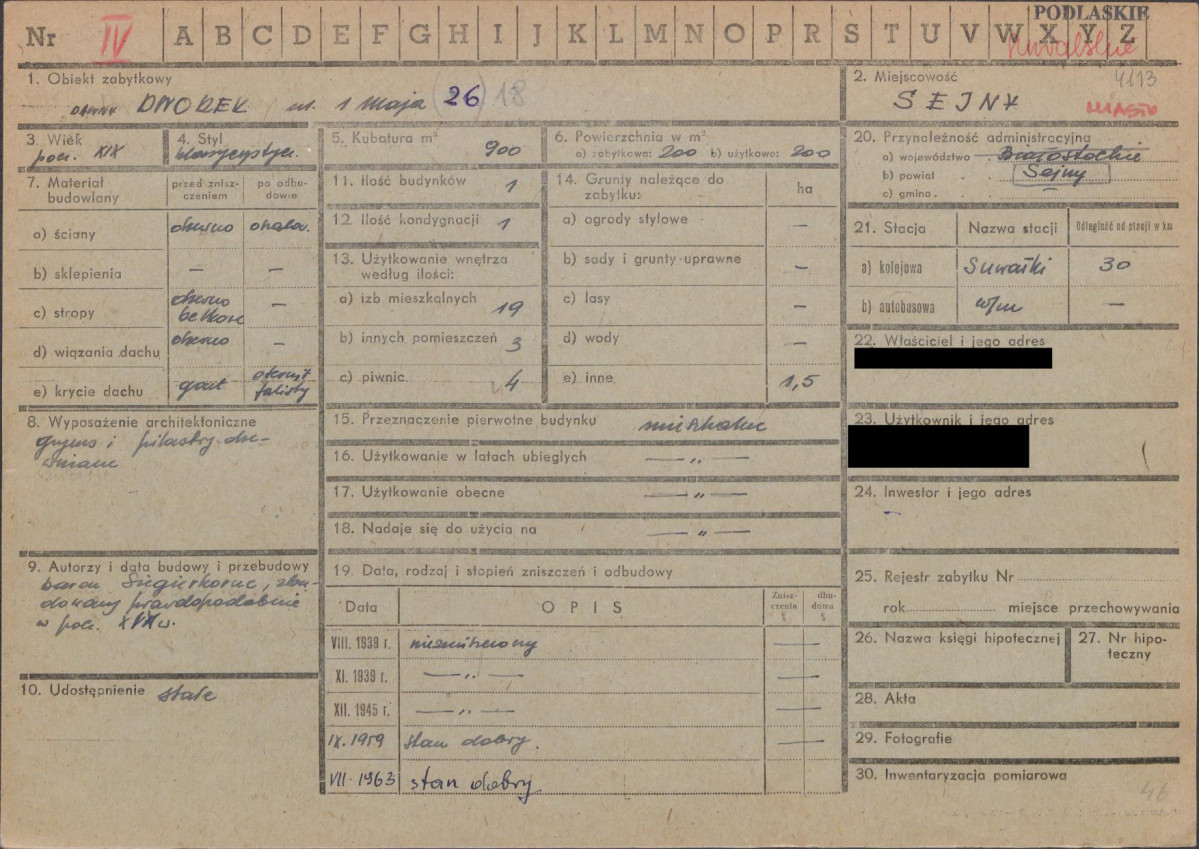 PODLASKIE
Nr IV A B C D E F G H I J K L M N O P R S T U V W X Y Z
Suwalskie
1. Obiekt zabytkowy
DAWNY DWOREK ul. 1 Maja (26) 18
2. Miejscowość 4113
SEJNY MIASTO
3. Wiek
poł. XIX
4. Styl
klasycystycz.
5. Kubatura m³ 900
6. Powierzchnia w m²
a) zabytkowa: 200 b) użytkowa: 200
20. Przynależność administracyjna
a) województwo Białostockie
b) powiat Sejny
c) gmina
7. Materiał budowlany
przed zniszczeniem
po odbudowie
a) ściany drewno
b) sklepienia — —
c) stropy drewno belkowe —
d) wiązania dachu drewno —
e) krycie dachu gont eternit falisty
11. Ilość budynków 1
12. Ilość kondygnacji 1
13. Użytkowanie wnętrza
według ilości:
a) izb mieszkalnych 19
b) innych pomieszczeń 3
c) piwnic 4
14. Grunty należące do
zabytku: ha
a) ogrody stylowe —
b) sady i grunty uprawne —
c) lasy —
d) wody —
e) inne 1,5
21. Stacja Nazwa stacji Odległość od stacji w km
a) kolejowa Suwałki 30
b) autobusowa w/m —
22. Właściciel i jego adres
8. Wyposażenie architektoniczne
gzyms i pilastry dre-
wniane
15. Przeznaczenie pierwotne budynku mieszkalne
16. Użytkowanie w latach ubiegłych — „ —
17. Użytkowanie obecne — „ —
18. Nadaje się do użycia na — „ —
23. Użytkownik i jego adres
24. Inwestor i jego adres
-
9. Autorzy i data budowy i przebudowy
baron, zbu-
dowany prawdopodobnie
w poł. XIX w.
10. Udostępnienie stałe
19. Data, rodzaj i stopień zniszczeń i odbudowy
Data OPIS Zniszczenia % dbudowa %
VIII. 1939 r. niezniszczony —
XI. 1939 r. — „ — —
XII. 1945 r. — „ — —
IX. 1959 stan dobry. —
VII. 1963 stan dobry.
25. Rejestr zabytku Nr
rok miejsce przechowywania
26. Nazwa księgi hipotecznej
27. Nr hipo-
teczny
28. Akta
29. Fotografie
30. Inwentaryzacja pomiarowa
46